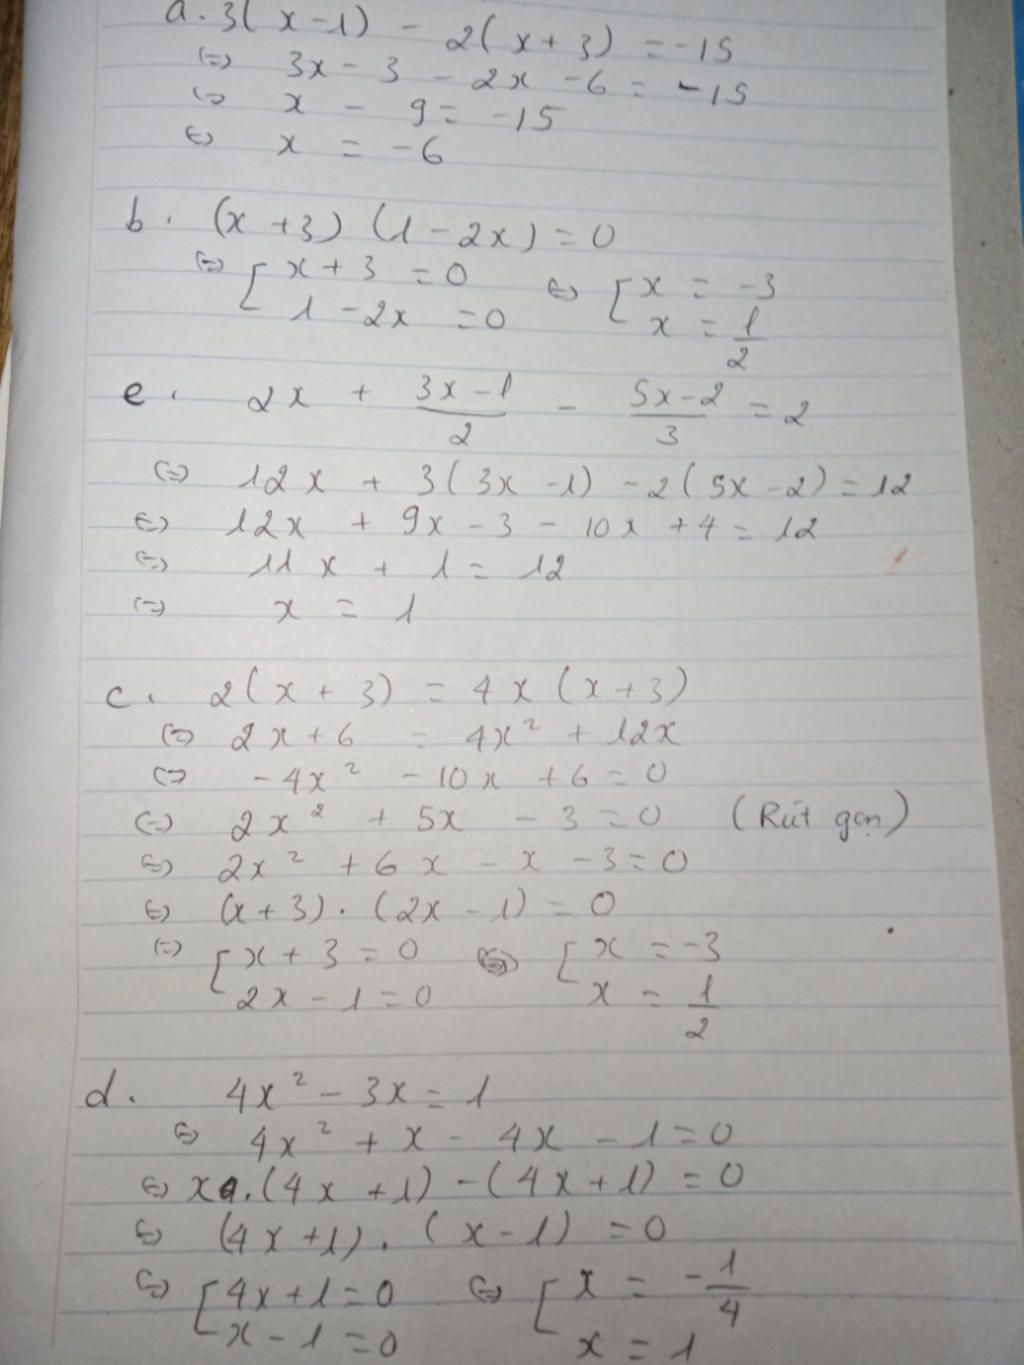 a. 3(x-1) - 2(x+3) = -15
(=) 3x - 3 - 2x - 6 = -15
(=) x - 9 = -15
(=) x = -6
b. (x+3) (1-2x) = 0
(=) [ x+3 = 0 (=) [ x = -3
1 - 2x = 0 x = 1/2
e. 2x + (3x-1)/2 - (5x-2)/3 = 2
(=) 12x + 3(3x-1) - 2(5x-2) = 12
(=) 12x + 9x - 3 - 10x + 4 = 12
(=) 11x + 1 = 12
(=) x = 1
c. 2(x+3) = 4x(x+3)
(=) 2x+6 = 4x² + 12x
(=) -4x² - 10x + 6 = 0
(=) 2x² + 5x - 3 = 0 (Rút gọn)
(=) 2x² + 6x - x - 3 = 0
(=) (x+3) . (2x-1) = 0
(=) [ x+3 = 0 (=) [ x = -3
2x - 1 = 0 x = 1/2
d. 4x² - 3x = 1
(=) 4x² + x - 4x - 1 = 0
(=) x.(4x+1) - (4x+1) = 0
(=) (4x+1) . (x-1) = 0
(=) [ 4x+1 = 0 (=) [ x = -1/4
x - 1 = 0 x = 1